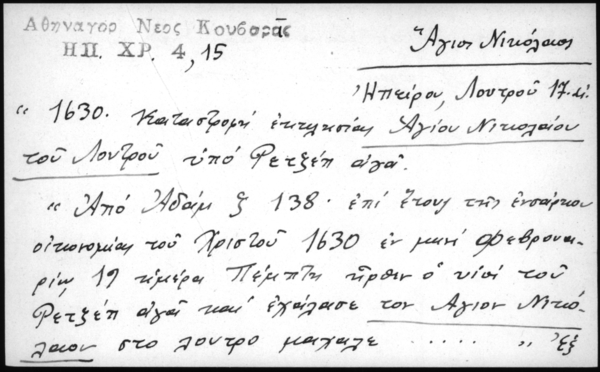 Αθηναγορ Νεος Κουβαρᾶς
ΗΠ. ΧΡ. 4, 15
Ἅγιος Νικόλαος
Ἠπείρου, Λουτροῦ 17.αἰ.
“ 1630. Καταστροφή ἐκκλησίας Ἁγίου Νικολάου
τοῦ Λουτροῦ ὑπό Ρετζέπ ἀγᾶ.
“ Ἀπό Ἀδάμ ξ 138. ἐπί ἔτους τῆς ἐνσάρκου
οἰκονομίας τοῦ Χριστοῦ 1630 ἐν μηνί Φεβρουα-
ρίῳ 19 ἡμέρα Πέμπτη ἦρθεν ὁ υἱός τοῦ
Ρετζέπ ἀγᾶ καί ἐχάλασε τον Ἅγιον Νικό-
λαον στο λουτρο μαχαλε ..... ,,